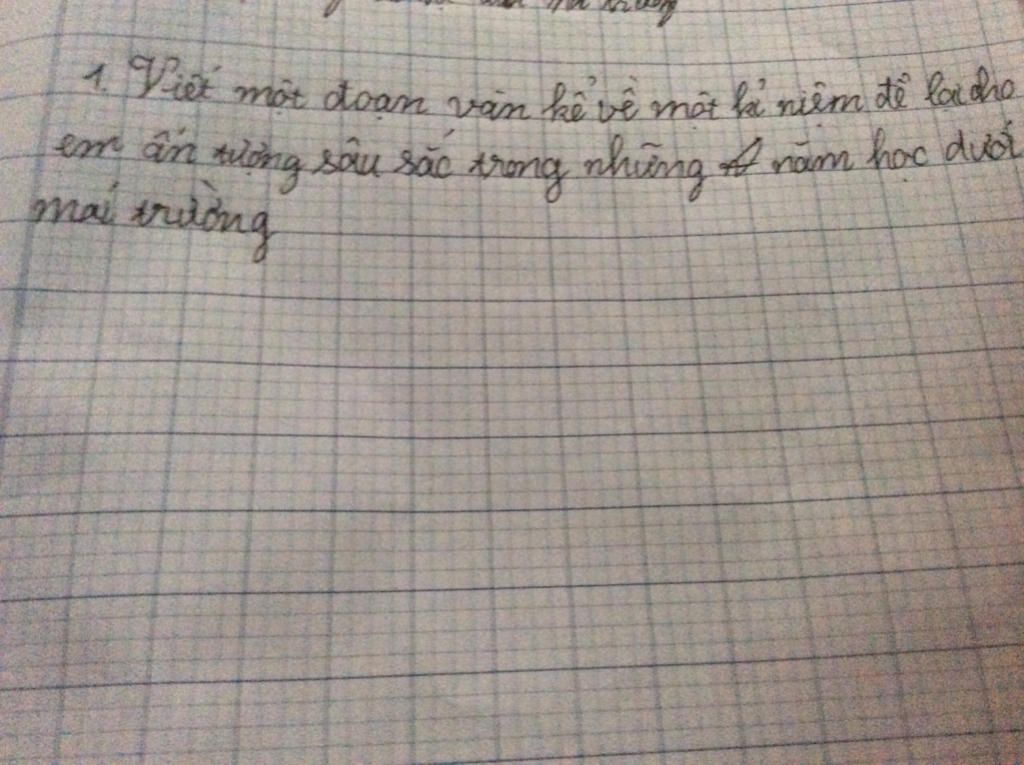 1. Viết một đoạn văn kể về một kỉ niệm để lại cho
em ấn tượng sâu sắc trong những năm học dưới
mái trường